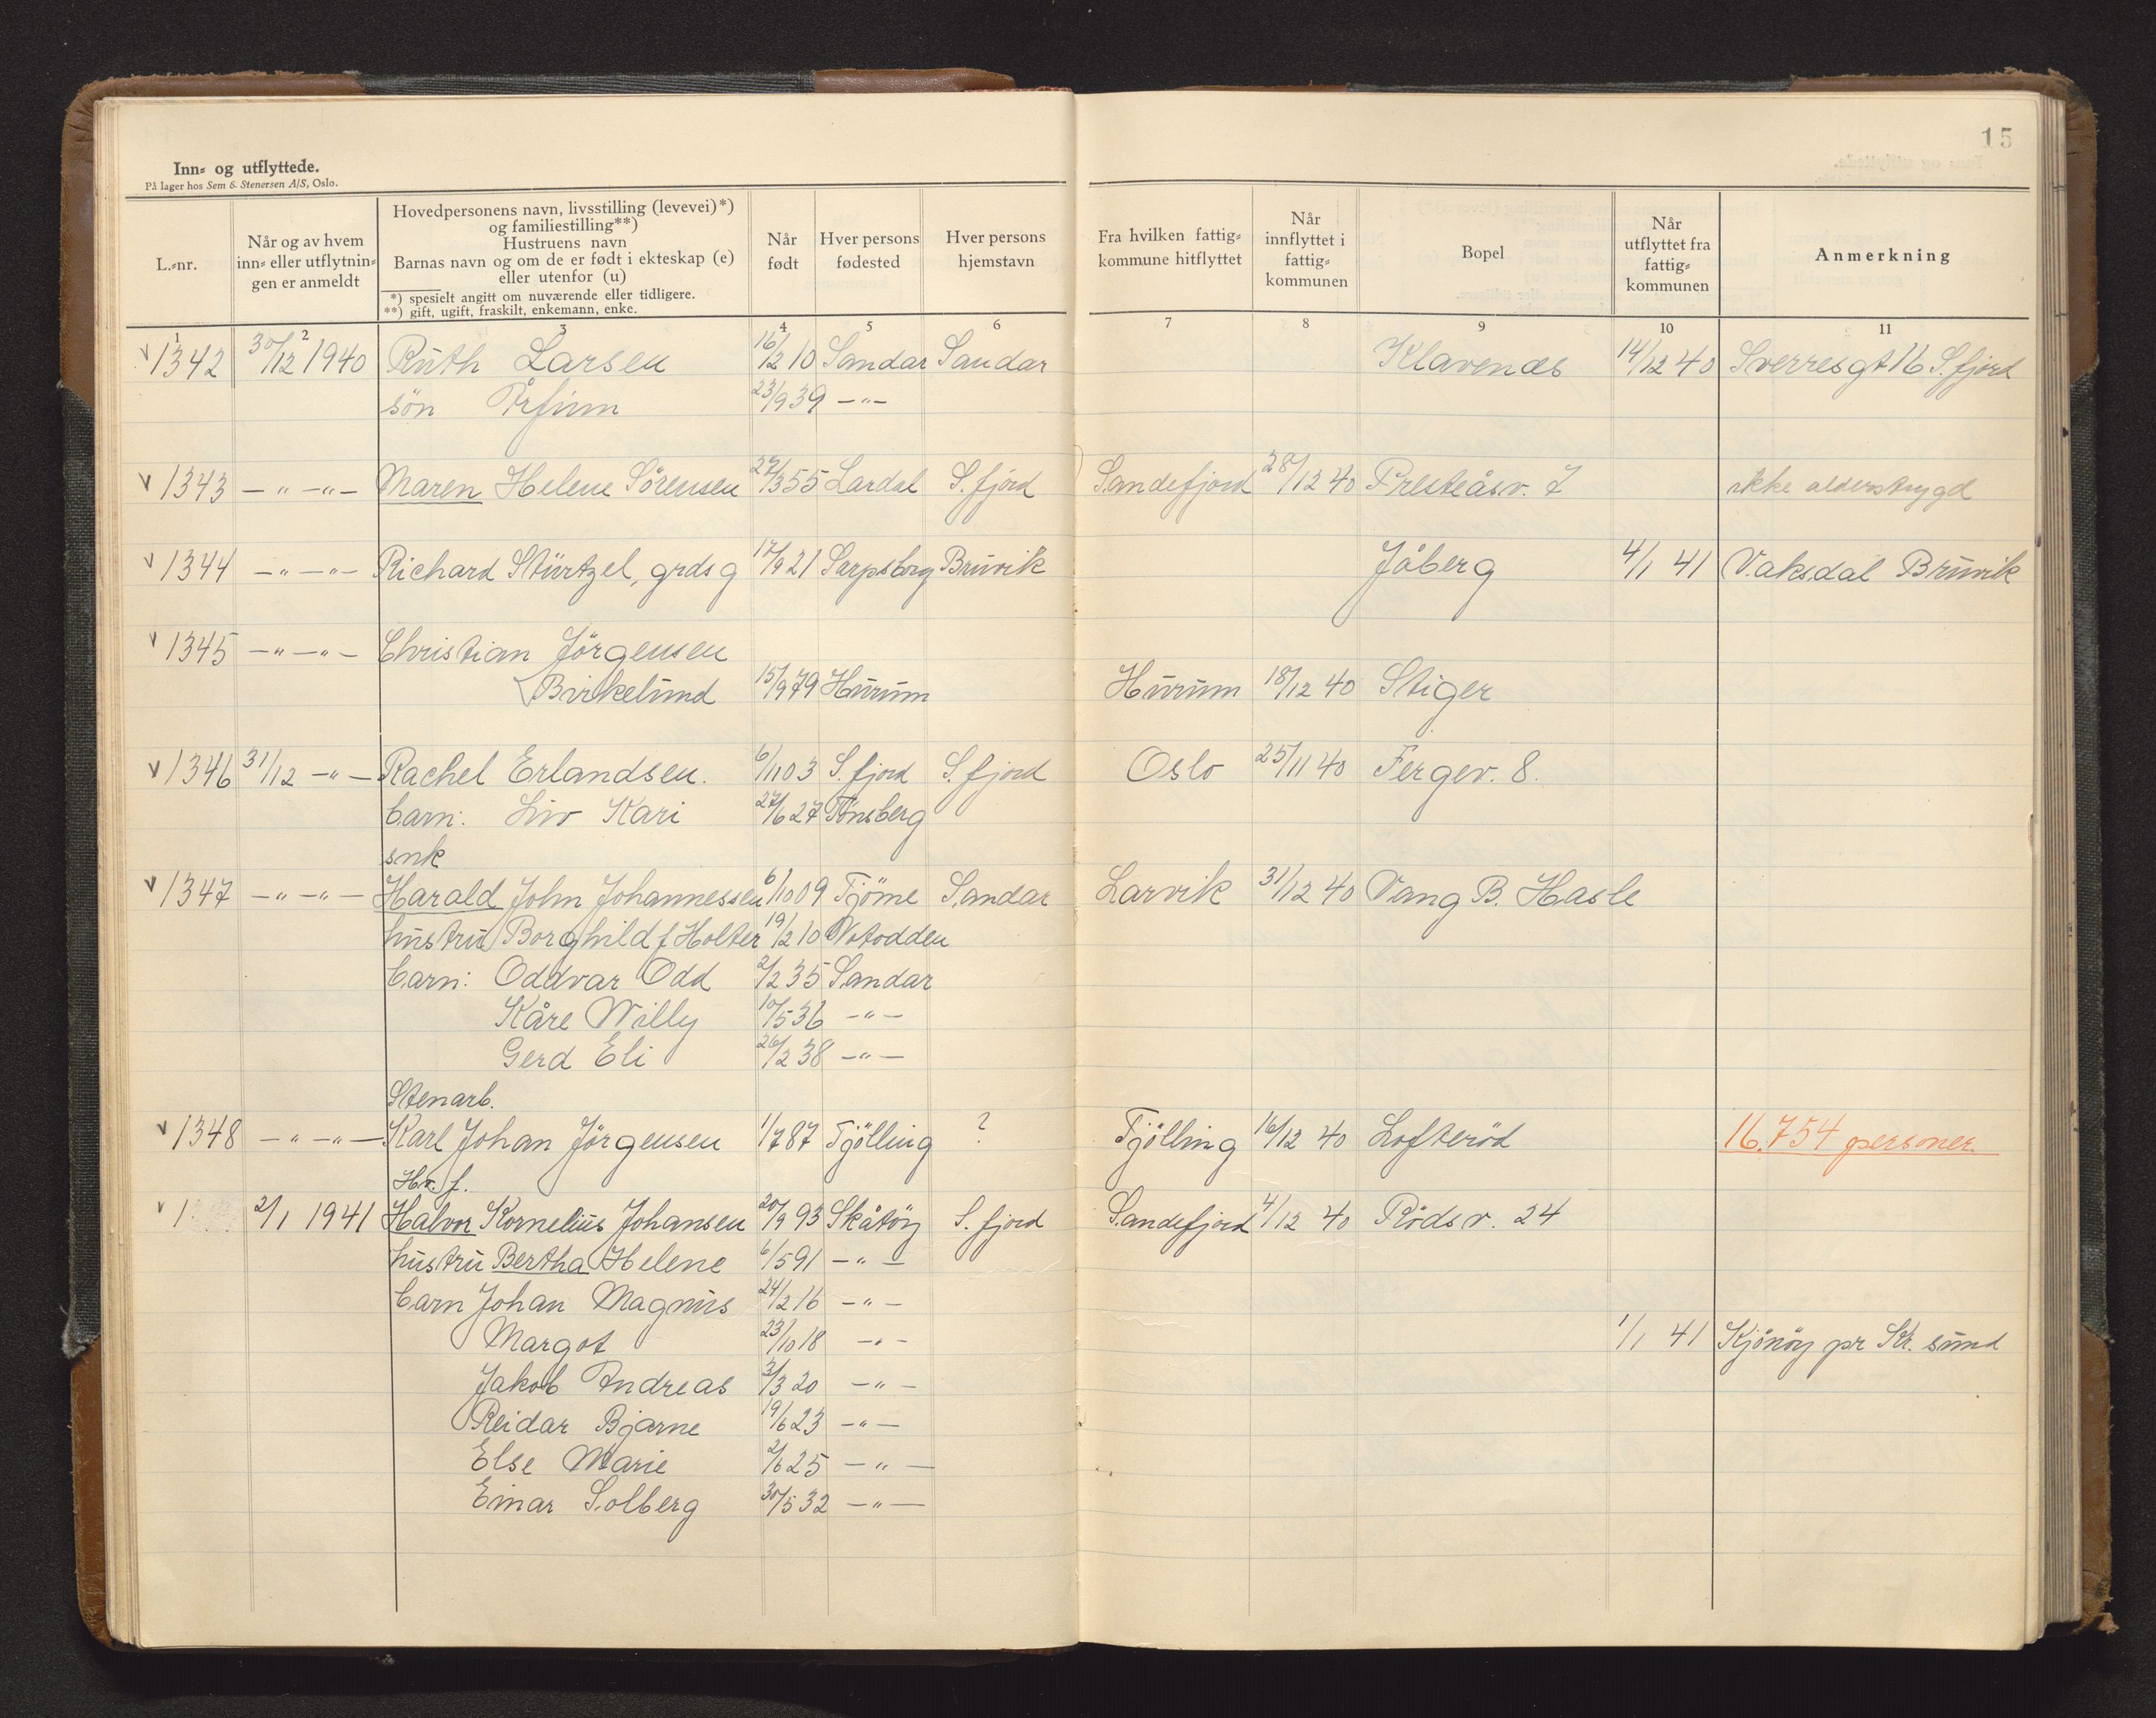 15
Inn- og utflyttede.
På lager hos Sem & Stenersen A/S, Oslo.
L.-nr.
Når og av hvem
inn- eller utflytnin-
gen er anmeldt
Hovedpersonens navn, livsstilling (levevei)*)
og familiestilling**)
Hustruens navn
Barnas navn og om de er født i ekteskap (e)
eller utenfor (u)
*) spesielt angitt om nuværende eller tidligere.
**) gift, ugift, fraskilt, enkemann, enke.
Når
født
Hver persons
fødested
Hver persons
hjemstavn
Fra hvilken fattig-
kommune hitflyttet
Når
innflyttet i
fattig-
kommunen
Bopel
Når
utflyttet fra
fattig-
kommunen
Anmerkning
1 2 3 4 5 6 7 8 9 10 11
v 1342 30/12 1940 Ruth Larsen 16/12 10 Sandar Sandar Klavenæs 14/12 40 Sverresgt 16 S.fjord
søn Arfinn 23/9 39 -"-
v 1343 -"- -"- Maren Helene Sörensen 27/3 55 Lardal S.fjord Sandefjord 28/12 40 Presteåsv. 7 ikke alderstrygd
v 1344 -"- -"- Richard Stürtzel, grdsg 17/9 21 Sarpsborg Bruvik Jåberg 4/1 41 Vaksdal Bruvik
v 1345 -"- -"- Christian Jörgensen
Birkelund 15/9 79 Hurum Hurum 18/12 40 Stiger
v 1346 31/12 -"- Rachel Erlandsen. 6/11 03 S.fjord S.fjord Oslo 25/11 40 Fergev. 8.
barn: Liv Kari 27/6 27 Tønsberg
snk
v 1347 -"- -"- Harald John Johannessen 6/10 09 Tjöme Sandar Larvik 31/12 40 Vang B. Hasle
hustru Borghild f Holter 19/2 10 Notodden
barn: Oddvar Odd 2/2 35 Sandar
Kåre Willy 10/5 36 -"-
Gerd Eli 26/2 38 -"-
Stenarb.
v 1348 -"- -"- Karl Johan Jörgensen 1/7 87 Tjölling ? Tjölling 16/12 40 Lofteröd 16.754 personer.
Hv. f.
v 1 2/1 1941 Halvor Kornelius Johansen 20/9 93 Skåtöy S.fjord Sandefjord 4/12 40 Rödsv. 24
hustru Bertha Helene 6/5 91 -"-
barn Johan Magnus 24/2 16 -"-
Margot 23/10 18 -"- 1/1 41 Kjönöy pr Kr. sund
Jakob Andreas 3/3 20 -"-
Reidar Bjarne 19/6 23 -"-
Else Marie 2/6 25 -"-
Einar Solberg 30/5 32 -"-